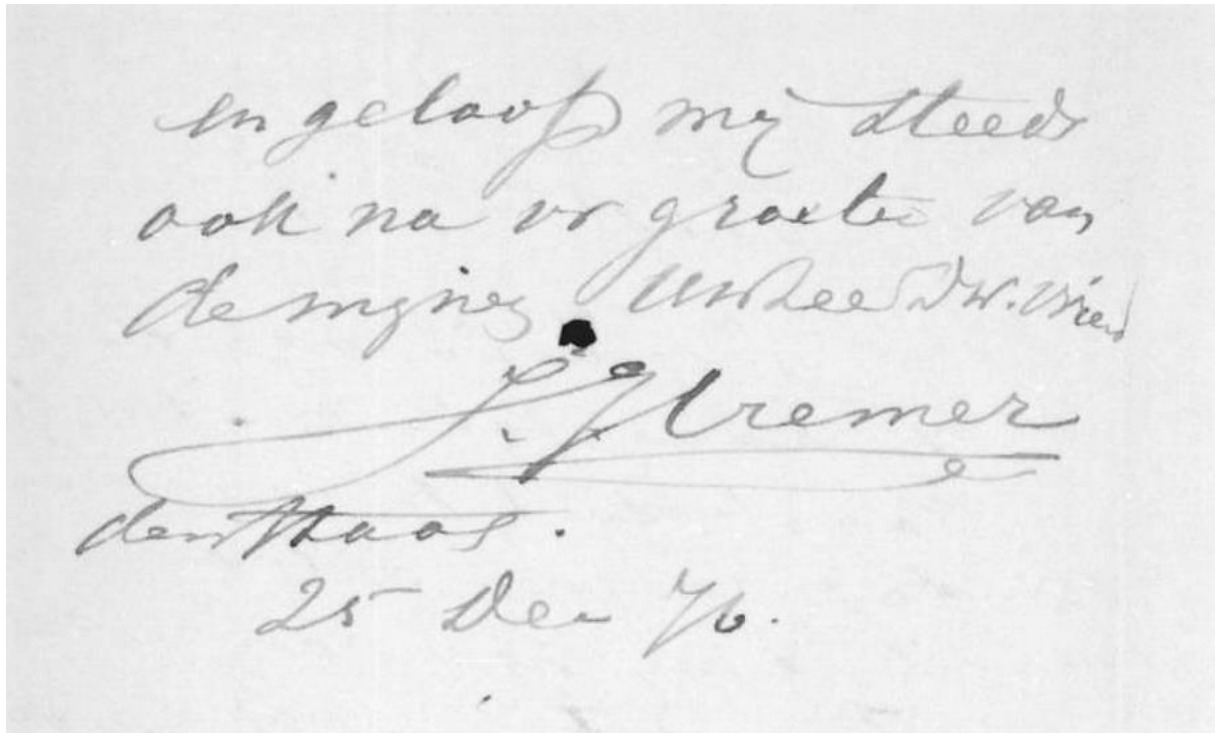 en geloof mij steeds
ook na vr groete van
de mijnen UwZeer Dw. Vriend
J. J. Cremer
den Haag.
25 Dec 76.